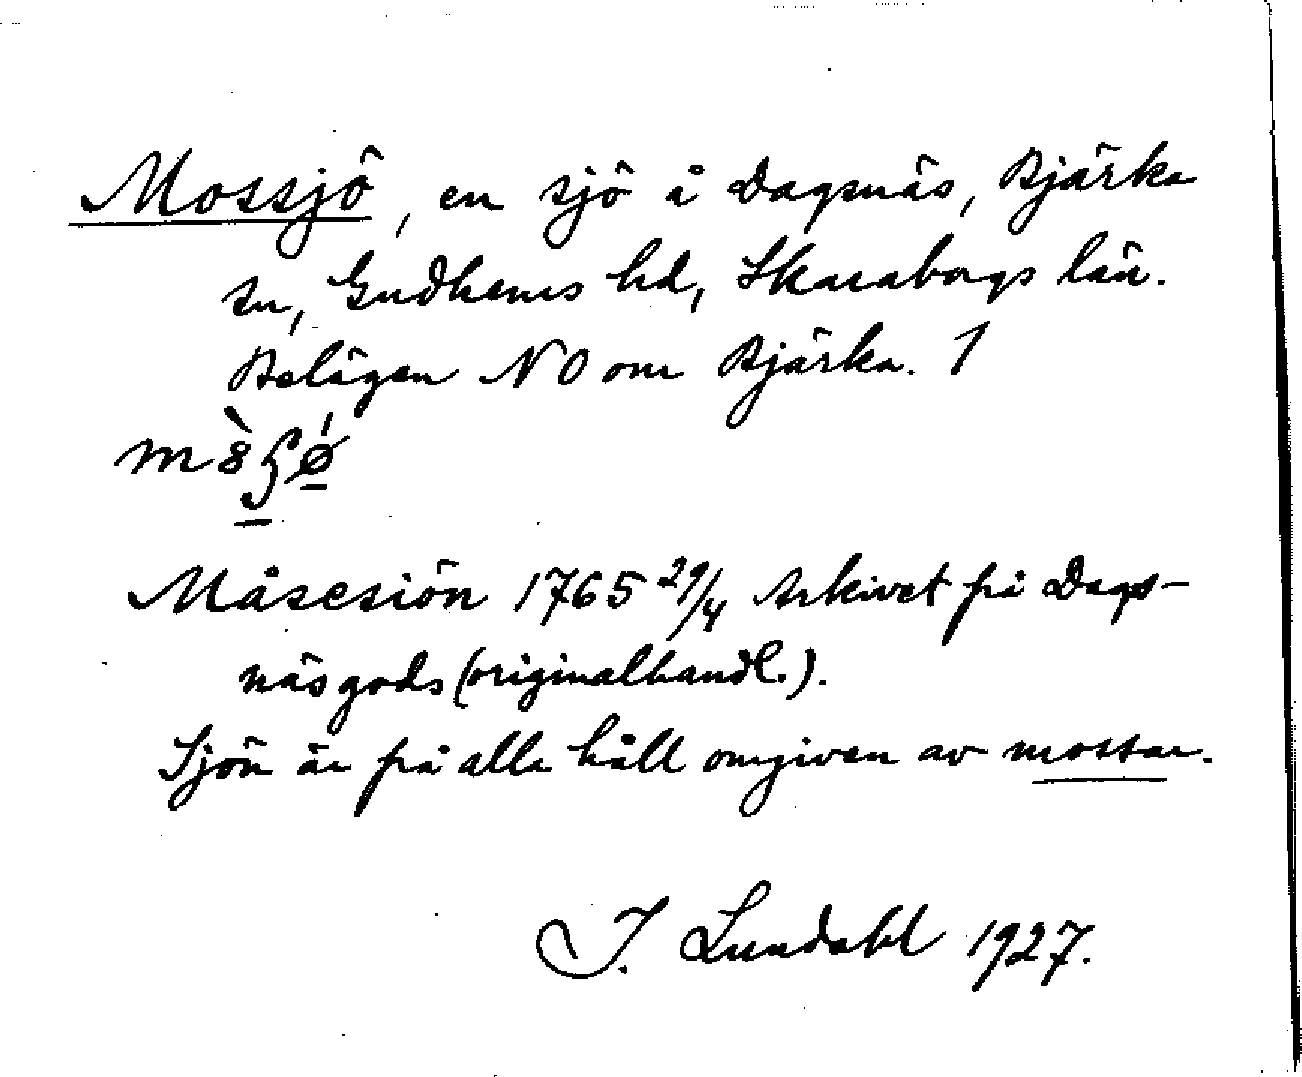 Mossjö, en sjö å Dagsnäs, Bjärka
sn, Gudhems hd, Skaraborgs län.
Belägen NO om Bjärka. 1
Måsesiön 1765 29/4 Arkivet på Dags-
näs gods (originalhandl.).
Sjön är på alla håll omgiven av mossar.
I. Lundahl 1927.